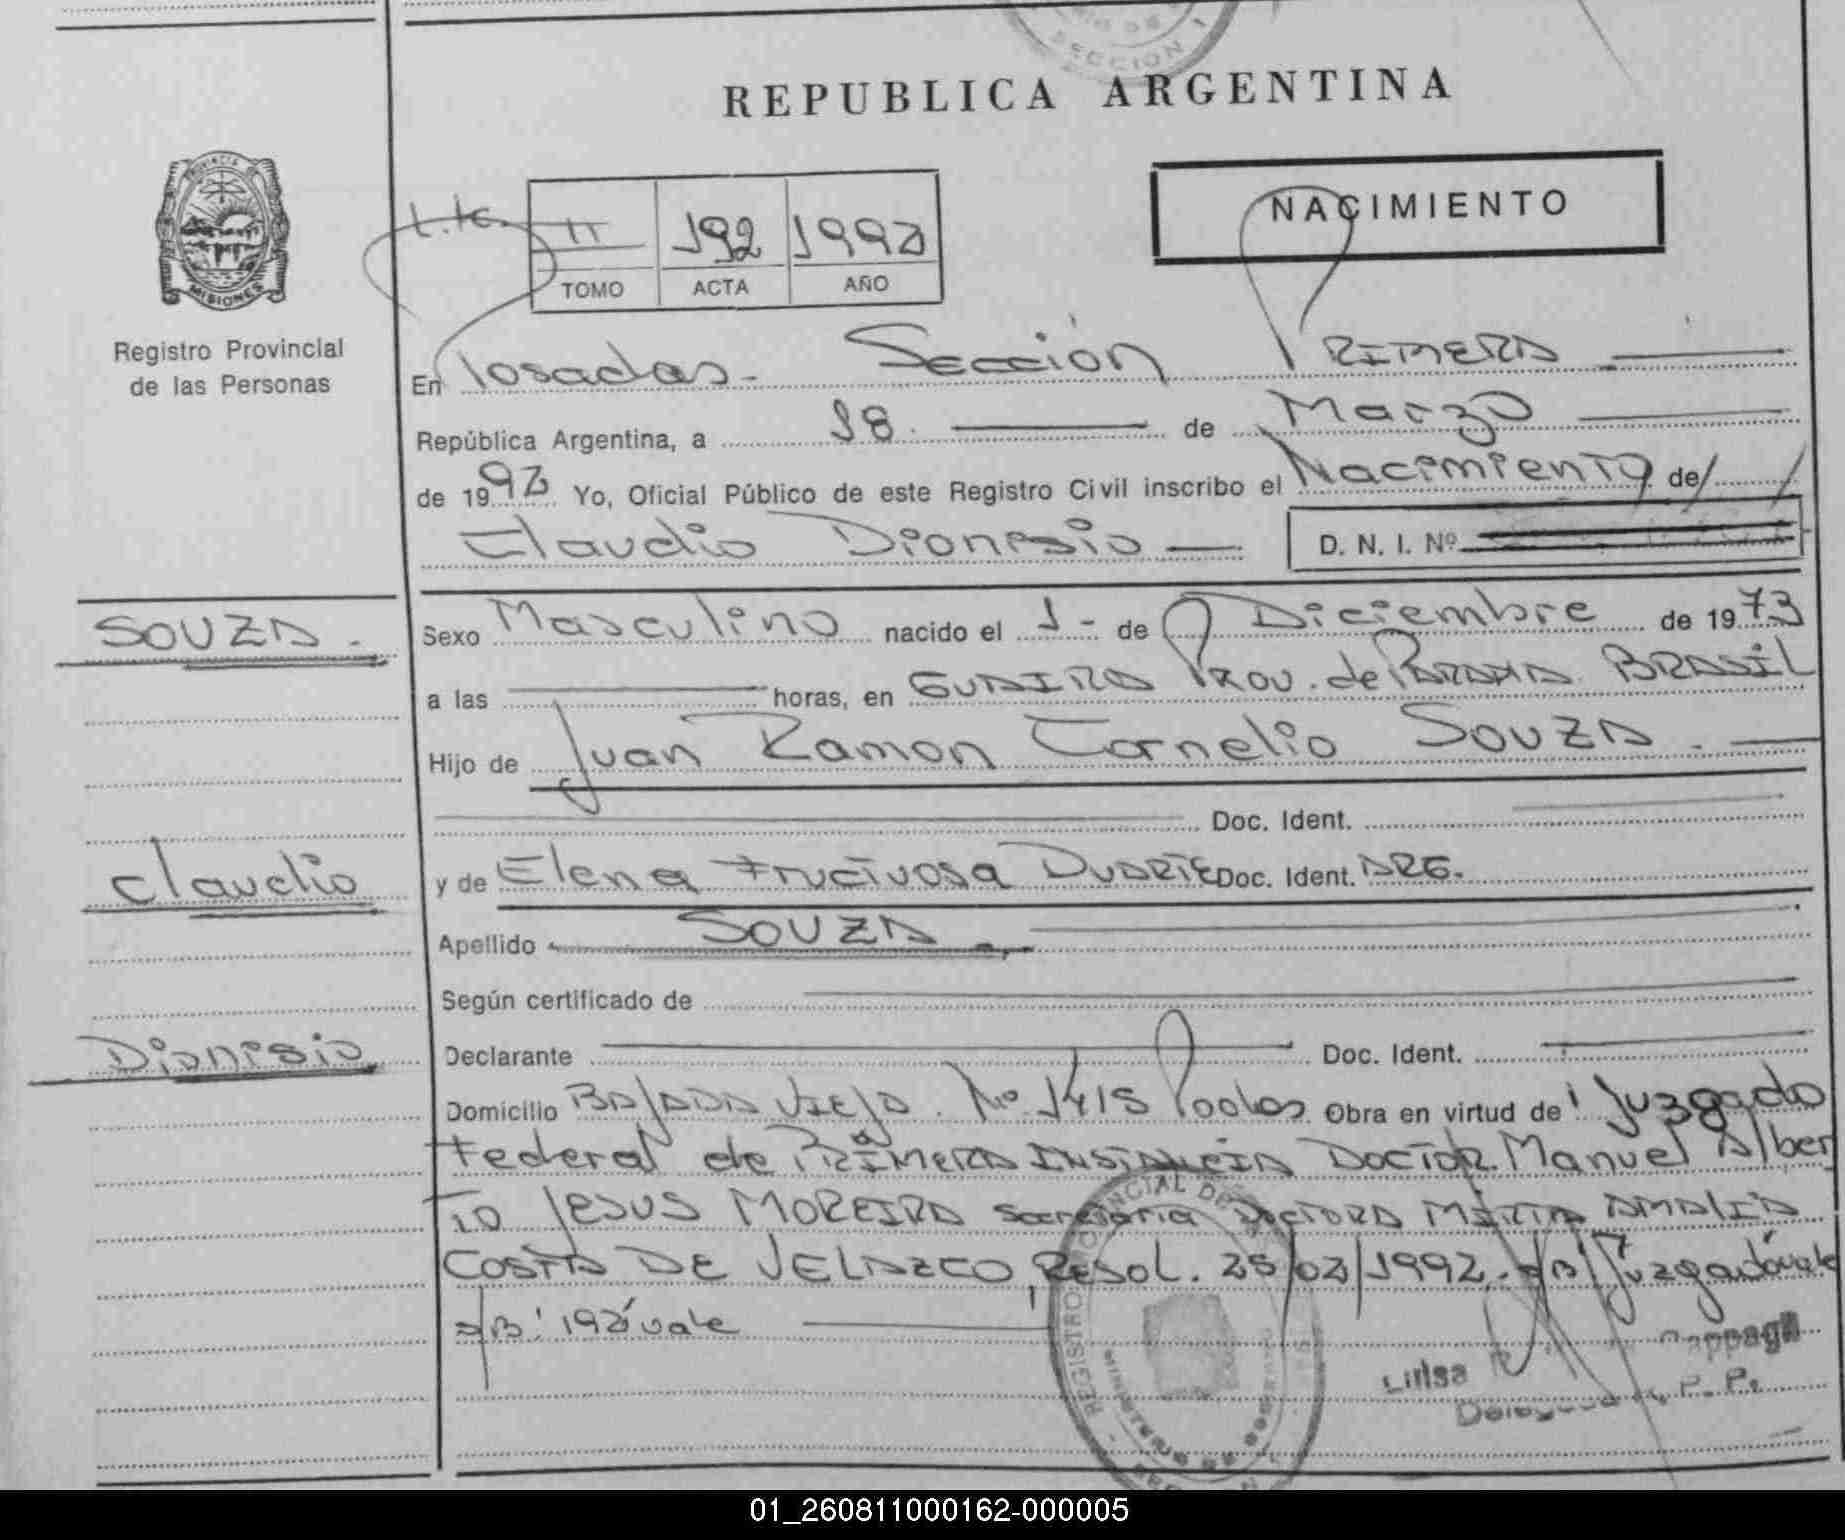 SECCION 1
REPUBLICA ARGENTINA
NACIMIENTO
PROVINCIA
MISIONES
Registro Provincial
de las Personas
II 192 1992
TOMO ACTA AÑO
En Posadas - Sección PRIMERA
República Argentina, a 18. de Marzo
de 1992 Yo, Oficial Público de este Registro Civil inscribo el Nacimiento de
Claudio Dionisio D. N. I. Nº
SOUZA.
Sexo Masculino nacido el 1- de Diciembre de 1973
a las horas, en GUAIRA Prov. de PARANA BRASIL
Hijo de Juan Ramon Cornelio SOUZA.
Doc. Ident.
Claudio
y de Elena Fructuosa DUARTE Doc. Ident. ARG.
Apellido SOUZA.
Según certificado de
Dionisio
Declarante Doc. Ident.
Domicilio BAJADA VIEJA. Nº 1415 Pdas Obra en virtud de Juzgado
Federal de PRIMERA INSTANCIA DOCTOR Manuel Alber
TO JESUS MOREIRA Secretaria DOCTORA MIRTA AMALIA
COSTA DE VELAZCO, RESOL. 25/02/1992. S/B' Juzgado vale
S/B' 192 vale
01_260811000162-000005